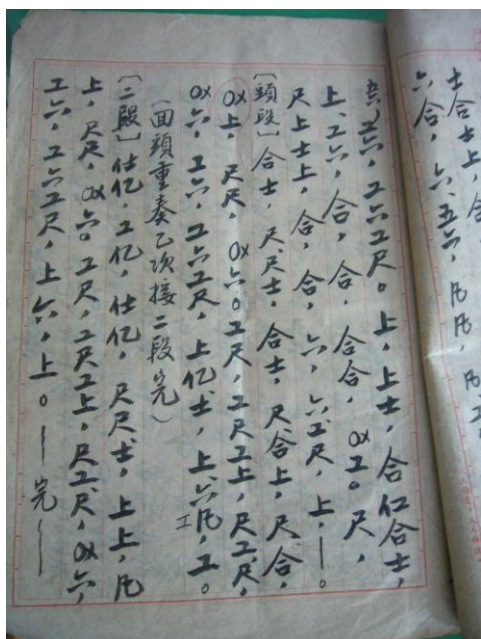 士合士上，合
六合，六、五六，凡凡，凡、工
六，工六，工六工尺。上，上士，合仁合士，
上、工六，合，合，合合，OX工。尺，
尺上士上，合，合，六，六工尺，上，—。
〔頭段〕合士，尺、尺士，合士，尺合上，尺合，
OX上，尺尺，OX六。工尺，工尺工上，尺工尺，
OX六，工六，工六工尺，上亿士，上、六凡，工。
工
（面頭重奏乙次接二段完）
〔二段〕仕亿，工亿，仕亿，尺尺士，上上，凡
上，尺尺，OX六。工尺，工尺工上，尺工尺，OX六，
工六，工六工尺，上六，上。—完—